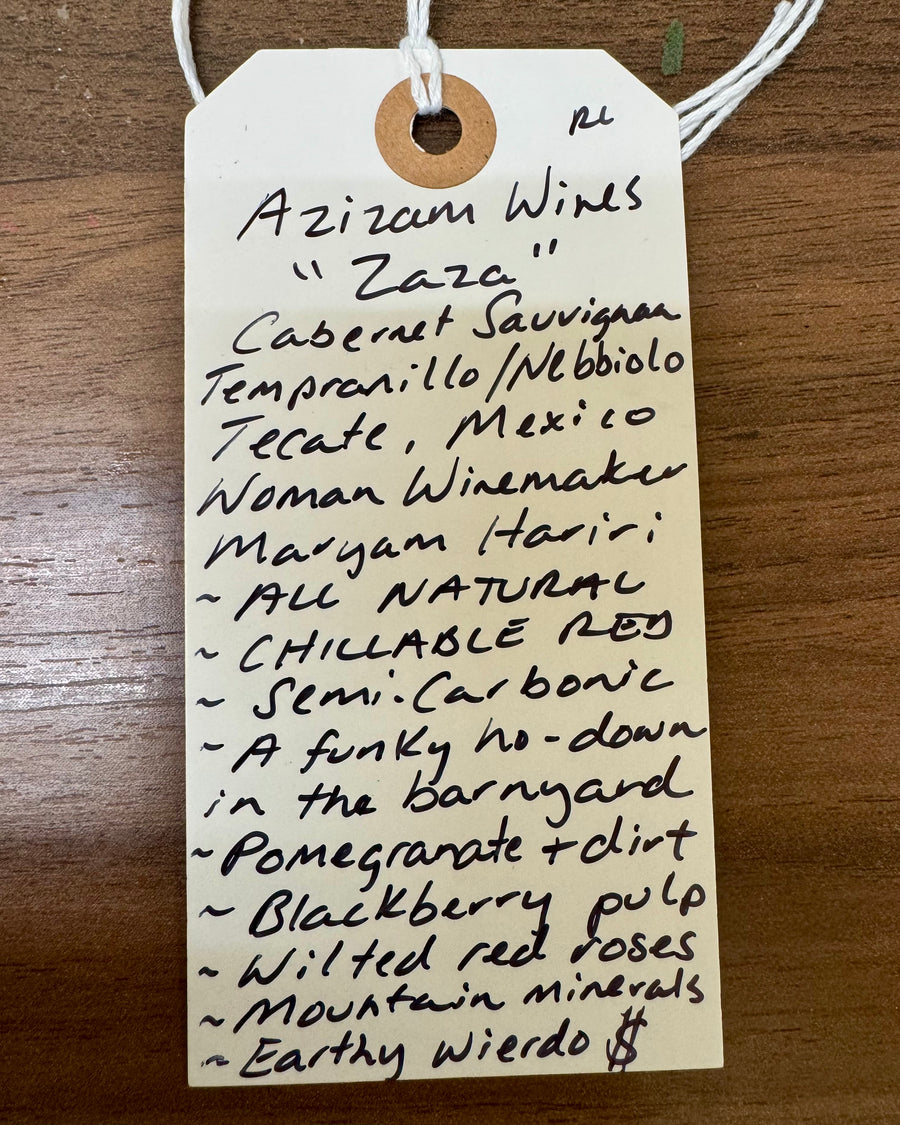 RL
Azizam Wines
"Zaza"
Cabernet Sauvignon
Tempranillo/Nebbiolo
Tecate, Mexico
Woman Winemaker
Maryam Hariri
~ ALL NATURAL
~ CHILLABLE RED
~ Semi-Carbonic
~ A funky ho-down
in the barnyard
~ Pomegranate + dirt
~ Blackberry pulp
~ Wilted red roses
~ Mountain minerals
~ Earthy Wierdo $